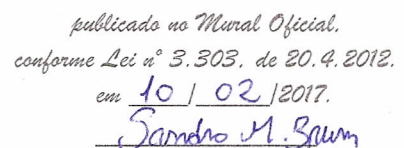 publicado no Mural Oficial,
conforme Lei nº 3.303, de 20.4.2012.
em 10 / 02 /2017.
Sandro M. Brum